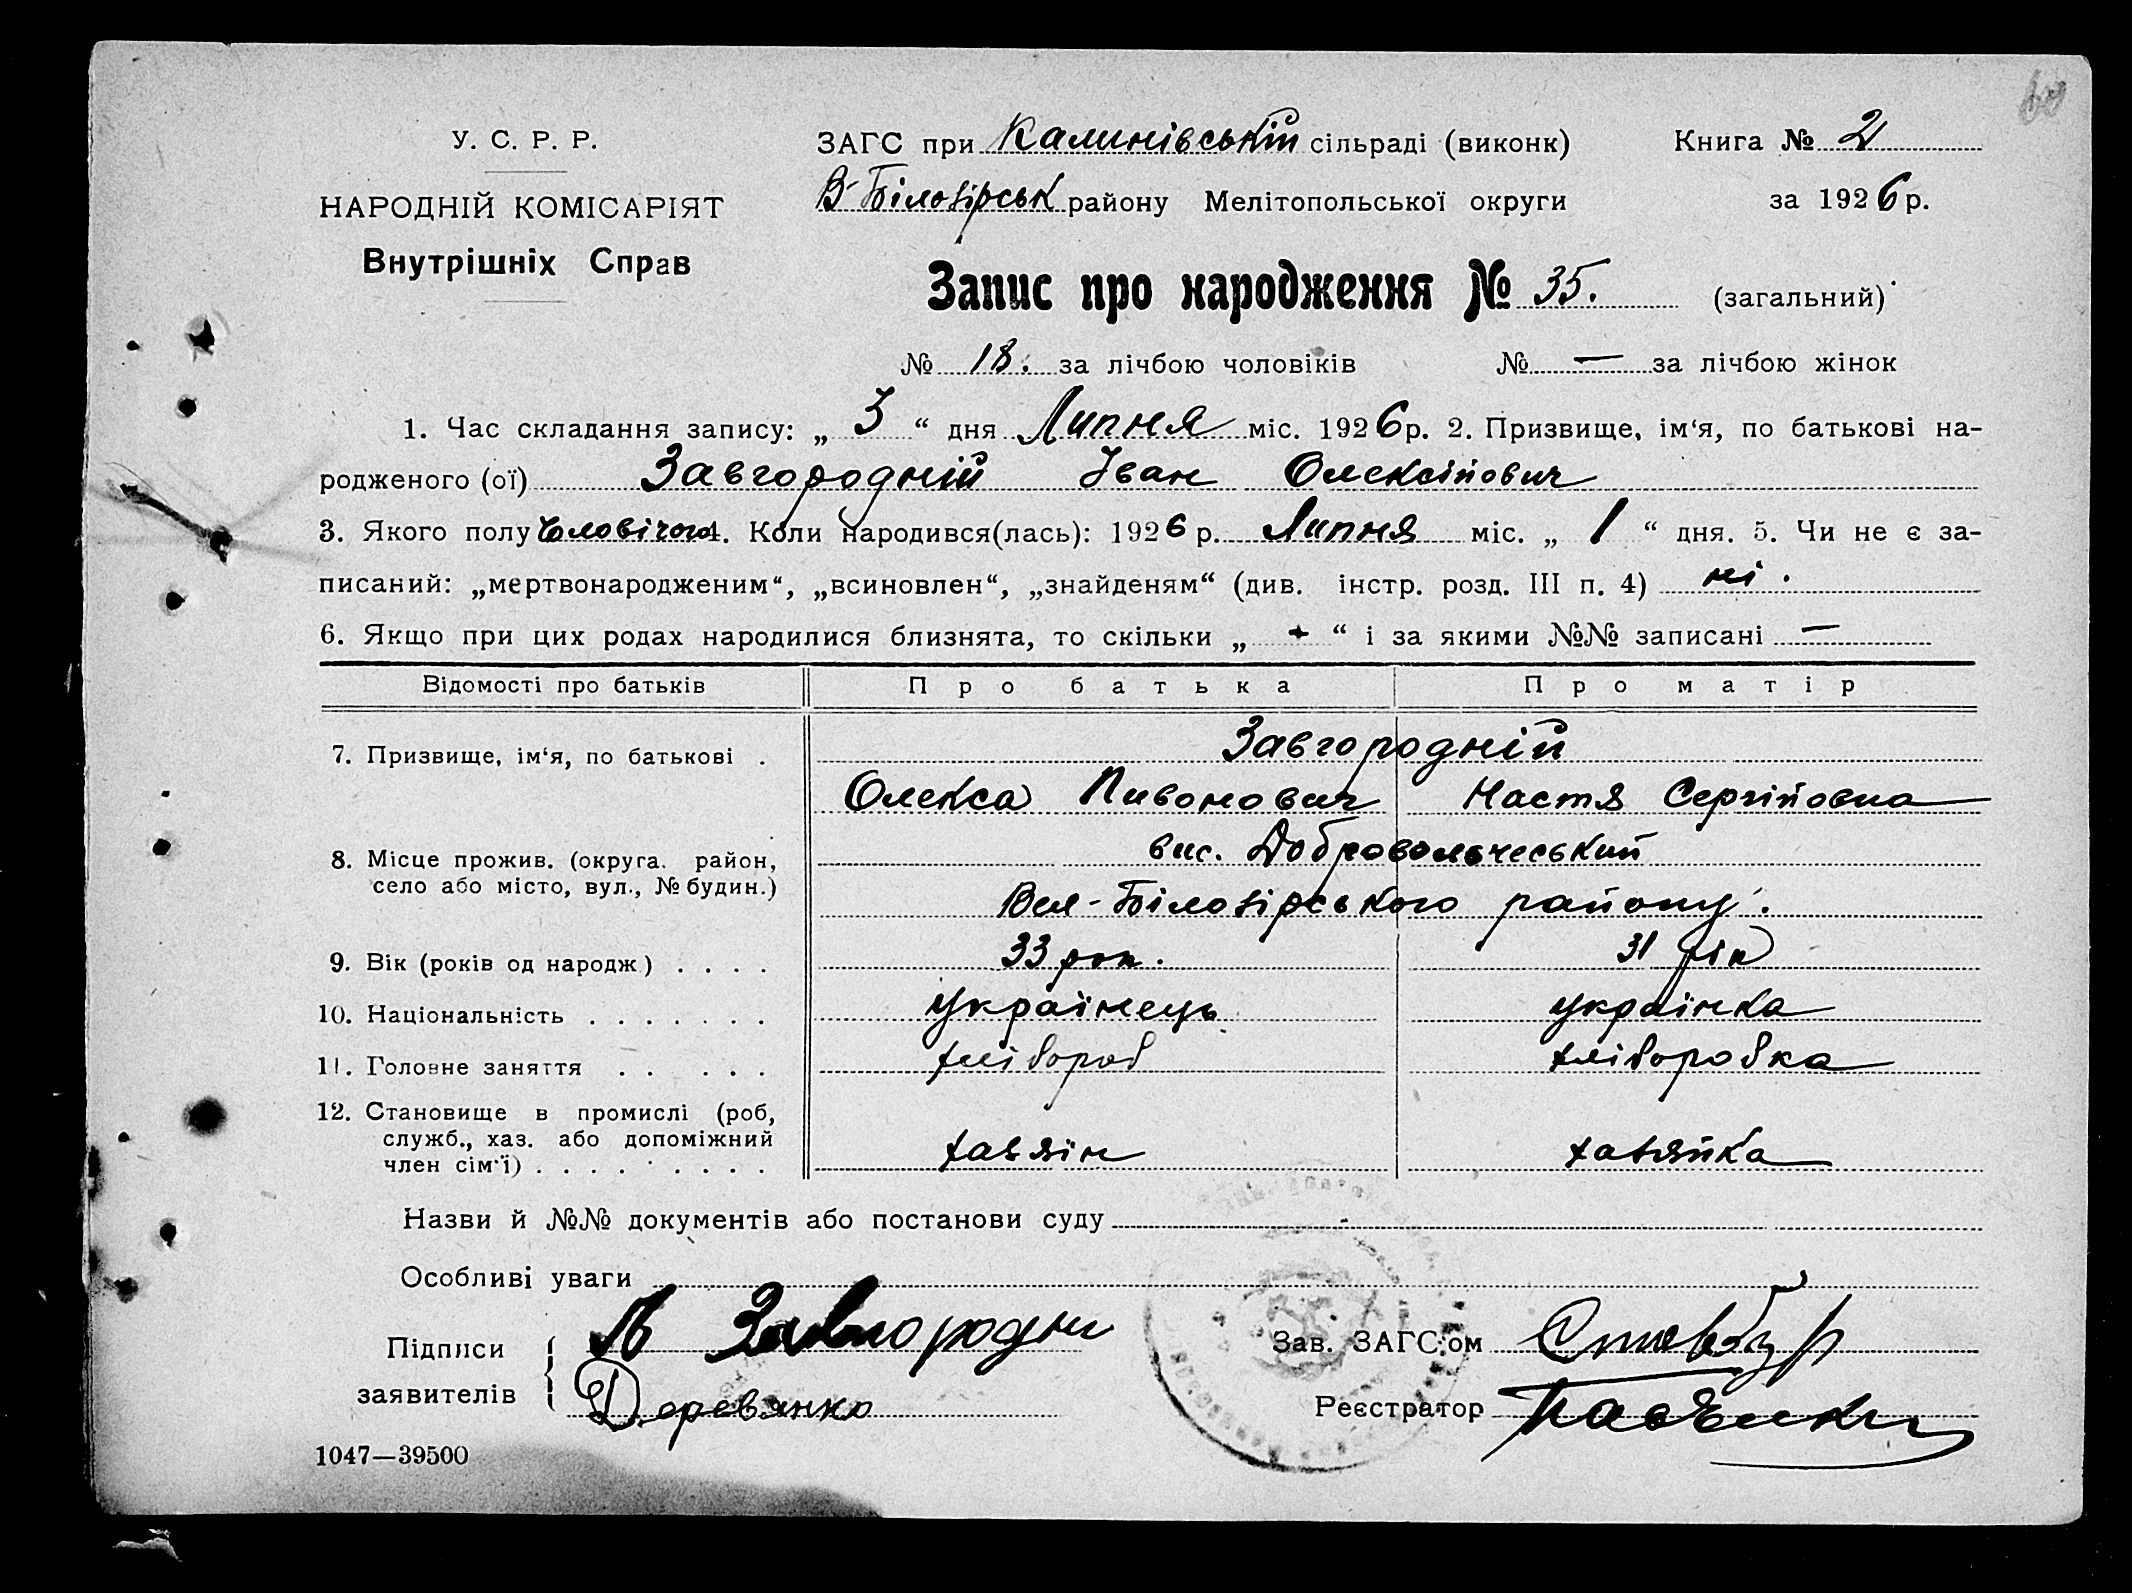 60
У. С. Р. Р.
НАРОДНІЙ КОМІСАРІЯТ
Внутрішніх Справ
ЗАГС при Калинівській сільраді (виконк)
В-Білозірськ району Мелітопольської округи
Книга № 2
за 1926 р.
Запис про народження № 35. (загальний)
№ 18. за лічбою чоловіків № — за лічбою жінок
1. Час складання запису: „ 3 “ дня Липня міс. 1926 р. 2. Призвище, ім‘я, по батькові на-
родженого (ої) Завгородній Іван Олексійович
3. Якого полу Чоловічого 4. Коли народився(лась): 1926 р. Липня міс. „ 1 “ дня. 5. Чи не є за-
писаний: „мертвонародженим“, „всиновлен“, „знайденям“ (див. інстр. розд. III п. 4) ні.
6. Якщо при цих родах народилися близнята, то скільки „ + “ і за якими №№ записані —
Відомості про батьків Про батька Про матір
7. Призвище, ім‘я, по батькові . Завгородній
Олекса Пивонович Настя Сергійовна
8. Місце прожив. (округа. район, село або місто, вул., № будин.) вис. Добровольчеський
Вел-Білозірського району.
9. Вік (років од народж) . . . . 33 рок. 31 рік
10. Національність . . . . . . . українець українка
11. Головне заняття . . . . . хлібороб хліборобка
12. Становище в промислі (роб,
служб., хаз. або допоміжний
член сім‘ї) . . . . . . . . . хазяїн хазяйка
Назви й №№ документів або постанови суду -
Особливі уваги
Підписи
заявителів
Завгородни
Деревянко
Зав. ЗАГС‘ом
Реєстратор
1047—39500